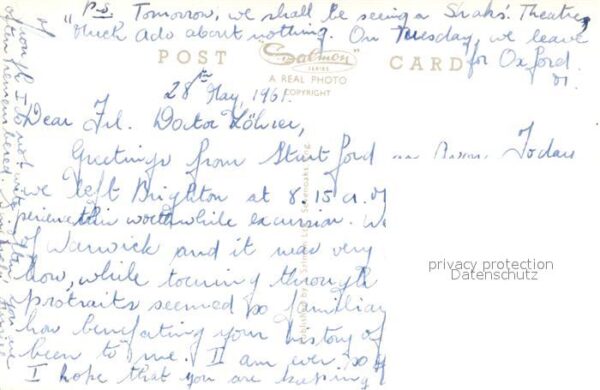 P.S. Tomorrow, we shall be seeing a Shaks. Theatre,
"Much Ado about nothing. On Tuesday, we leave
for Oxford.
POST CARD
Salmon
SERIES
A REAL PHOTO
COPYRIGHT
28th May, 1961.
Dear Frl. Doctor Köhrer,
Greetings from Stratford Today
we left Brighton at 8.15 a.
perience this worthwhile excursion. We
of Warwick and it was very
how, while touring through
protraits seemed so familiar
how benefating your history of
been to me. I am ever so
I hope that you are keeping
Though I do not write often, you are
often remembered.
privacy protection
Datenschutz